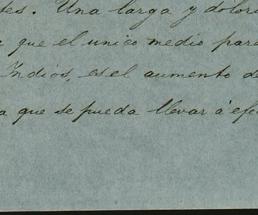 tes. Una larga y dolor
que el unico medio para
Indios, es el aumento de
a que se pueda llevar á efe